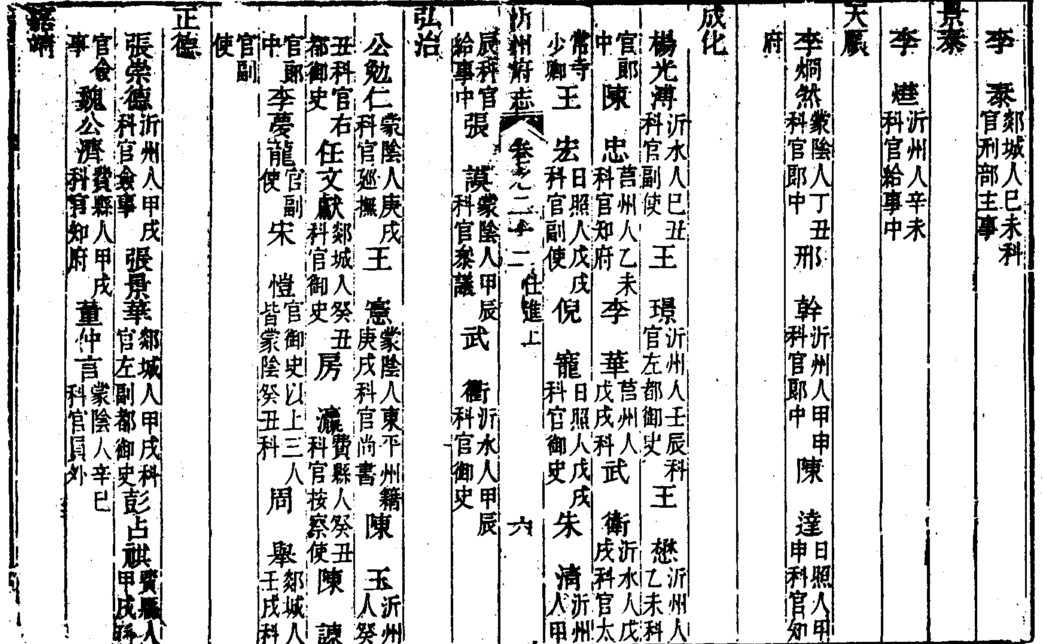 景泰
李　泰郯城人己未科官刑部主事
李　𤏡沂州人辛未科官給事中
天順
李炯然蒙陰人丁丑科官郎中　邢　幹沂州人甲申科官郎中　陳　達日照人甲申科官知
府
成化
楊光溥沂水人己丑科官副使　王　璟沂州人壬辰科官左都御史　王　懋沂州人乙未科
官郎中　陳　忠莒州人乙未科官知府　李　華莒州人戊戌科　武　衛沂水人戊戌科官太
常寺少卿　王　宏日照人戊戌科官副使　倪　寵日照人戊戌科官御史　朱　清沂州人甲
沂州府志　卷之二十二　仕進上　六
辰科官給事中　張　謨蒙陰人甲辰科官參議　武　衢沂水人甲辰科官御史
弘治
公勉仁蒙陰人庚戌科官廵撫　王　憲蒙陰人東平州籍庚戌科官尚書　陳　玉沂州人癸
丑科官右都御史　任文獻郯城人癸丑科官御史　房　瀛費縣人癸丑科官按察使　陳　諫
官郎中　李夢龍官副使　宋　愷官御史以上三人皆蒙陰癸丑科　周　舉郯城人壬戌科
官副使
正德
張崇德沂州人甲戌科官僉事　張景華郯城人甲戌科官左副都御史　彭占祺費縣人甲戌科
官僉事　魏公濟費縣人甲戌科官知府　董仲言蒙陰人辛巳科官員外
嘉靖